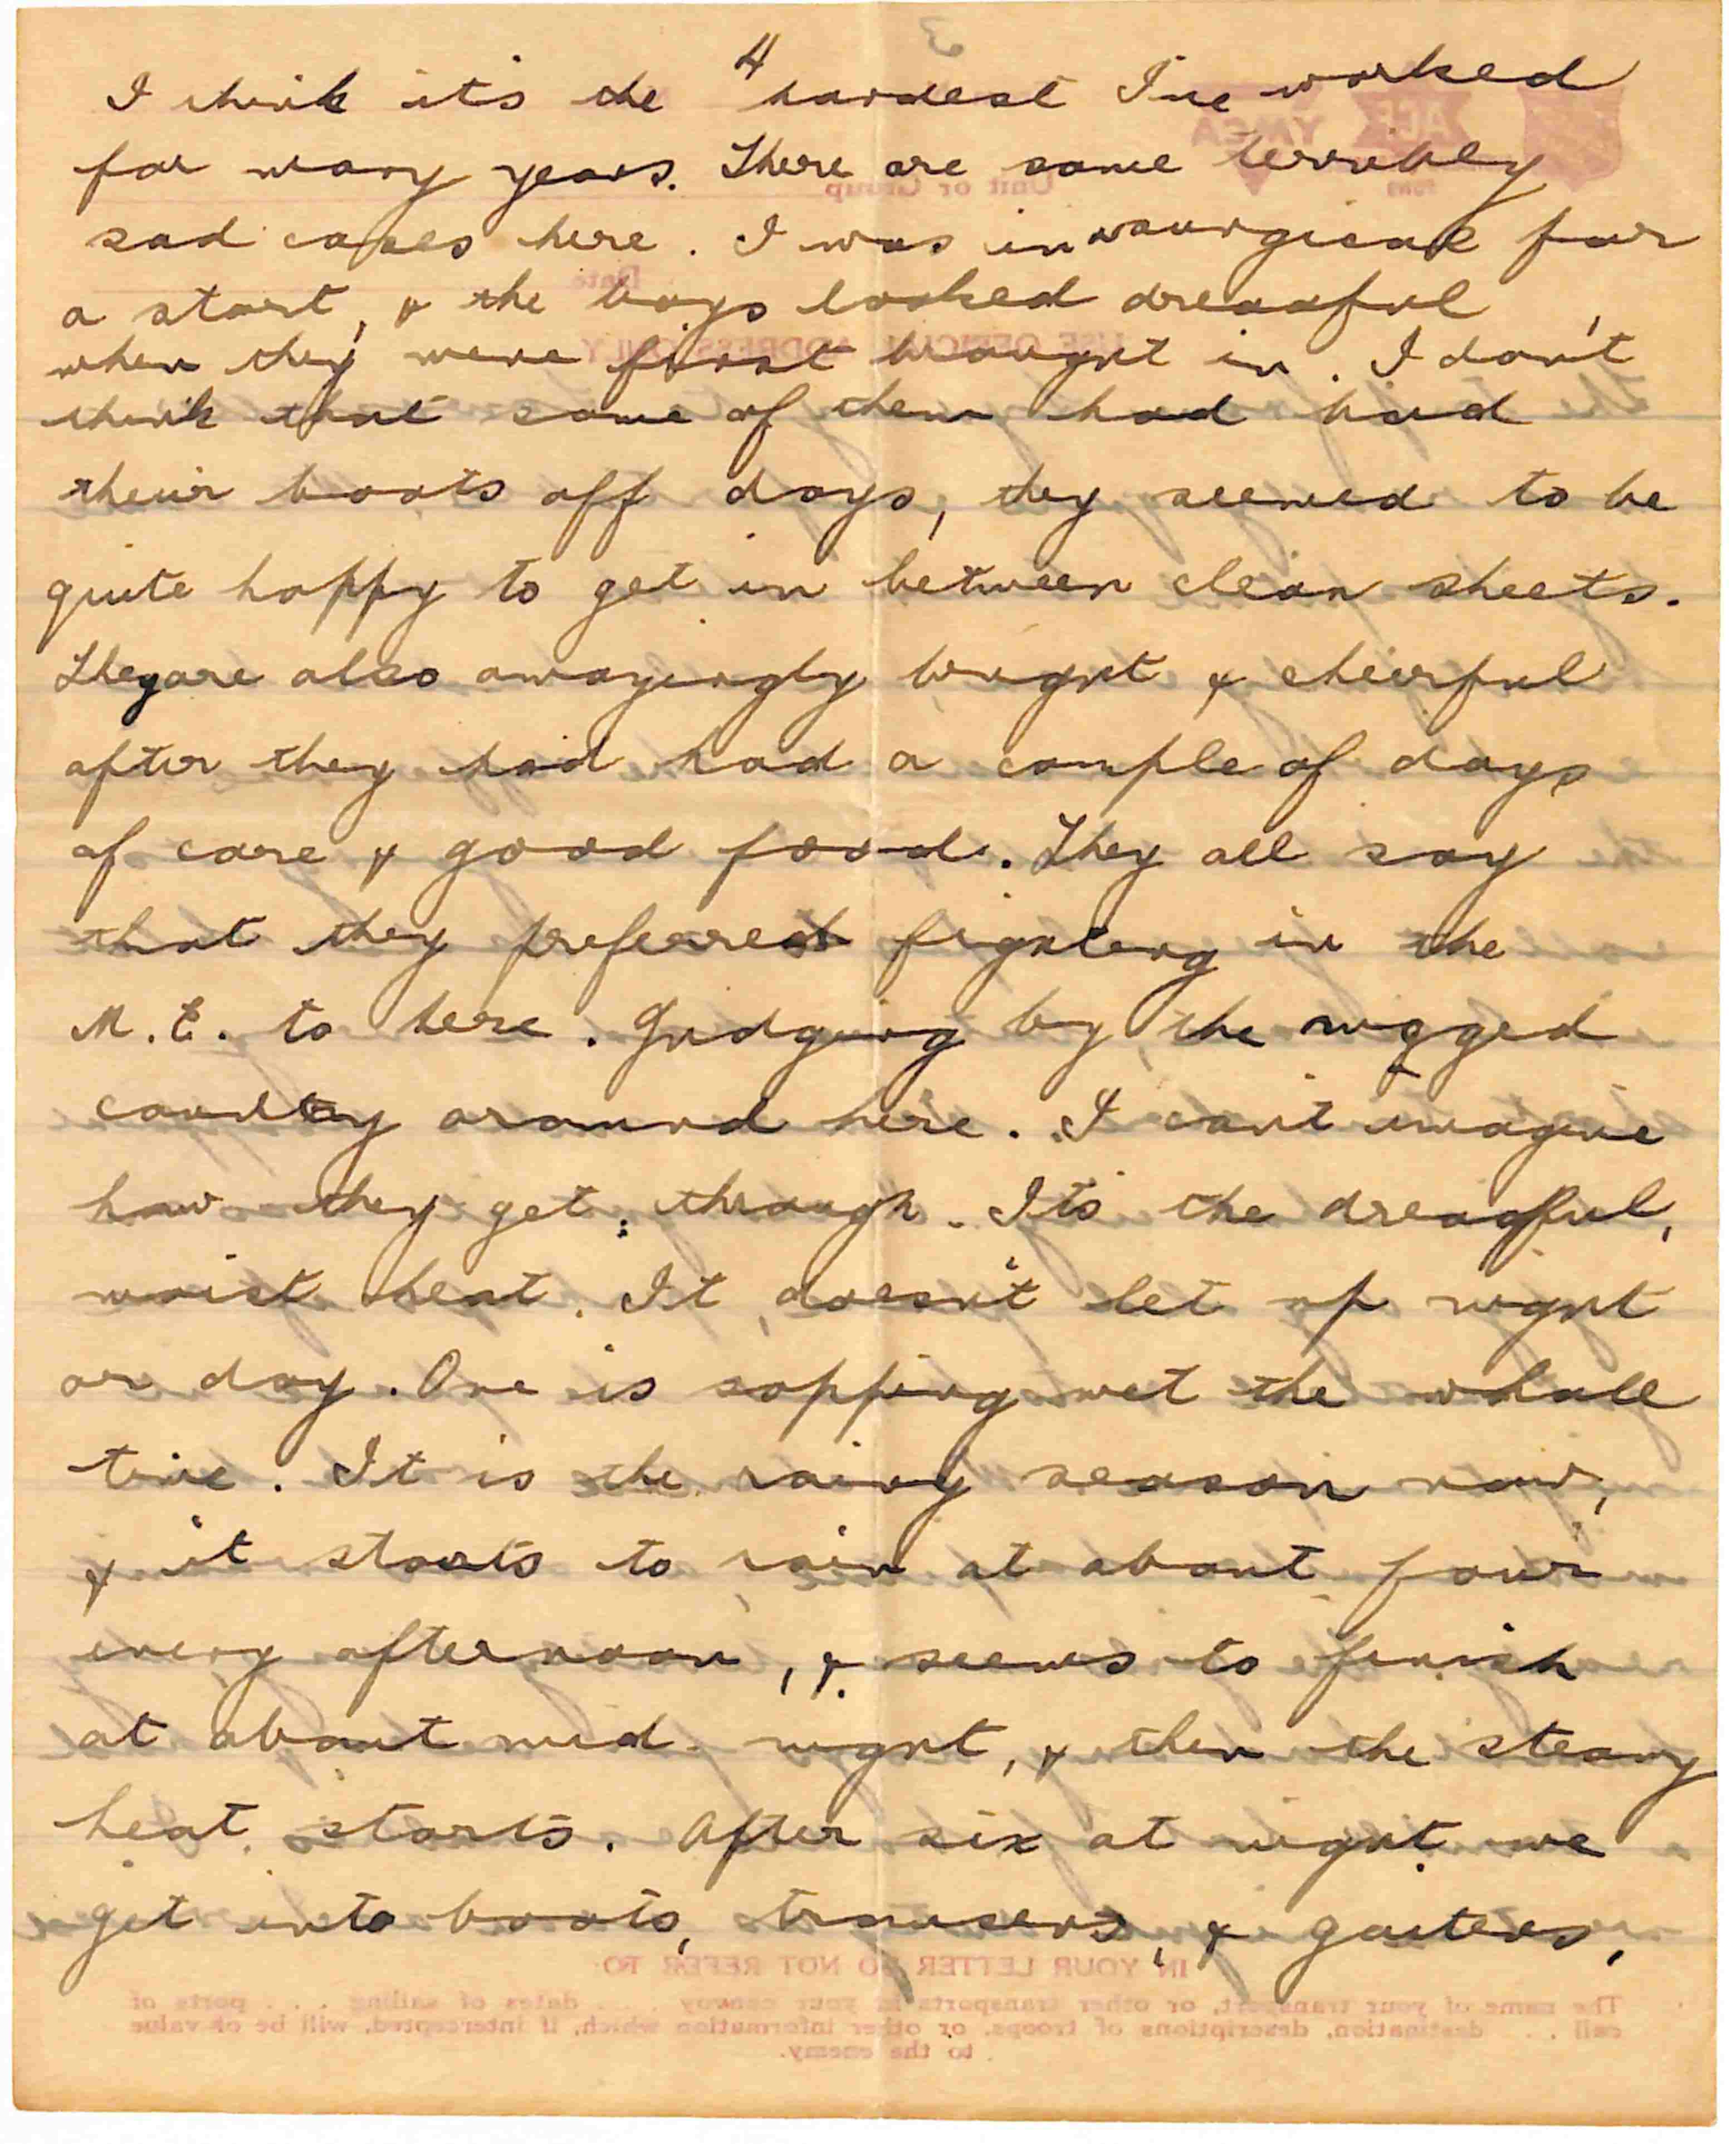 4
I think it's the hardest I've worked
for many years. There are some terribley
sad cases here. I was in a surgical for
a start, & the boys looked dreadful
when they were first brought in. I don't
think that some of them had had
their boots off days, they seemed to be
quite happy to get in between clean sheets.
They are also amazingly bright & cheirful
after they had had a couple of days
of care & good food. They all say
that they preferred fighting in the
M.E. to here. Judging by the rugged
country around here. I can't imagine
how they get through. Its the dreadful,
moist heat. It doesn't let up night
or day. One is sopping wet the whole
time. It is the rainy season now,
& it starts to rain at about four
every afternoon, & seems to finish
at about mid-night, & then the steamy
heat starts. After six at night we
get into boots, trousers, & gaiters,
3
ACF YMCA
Unit or Group
Date
USE OFFICIAL ADDRESS ONLY
IN YOUR LETTER DO NOT REFER TO:
The name of your transport, or other transports in your convoy . . . dates of sailing . . . ports of
call . . . destination, descriptions of troops, or other information which, if intercepted, will be of value
to the enemy.